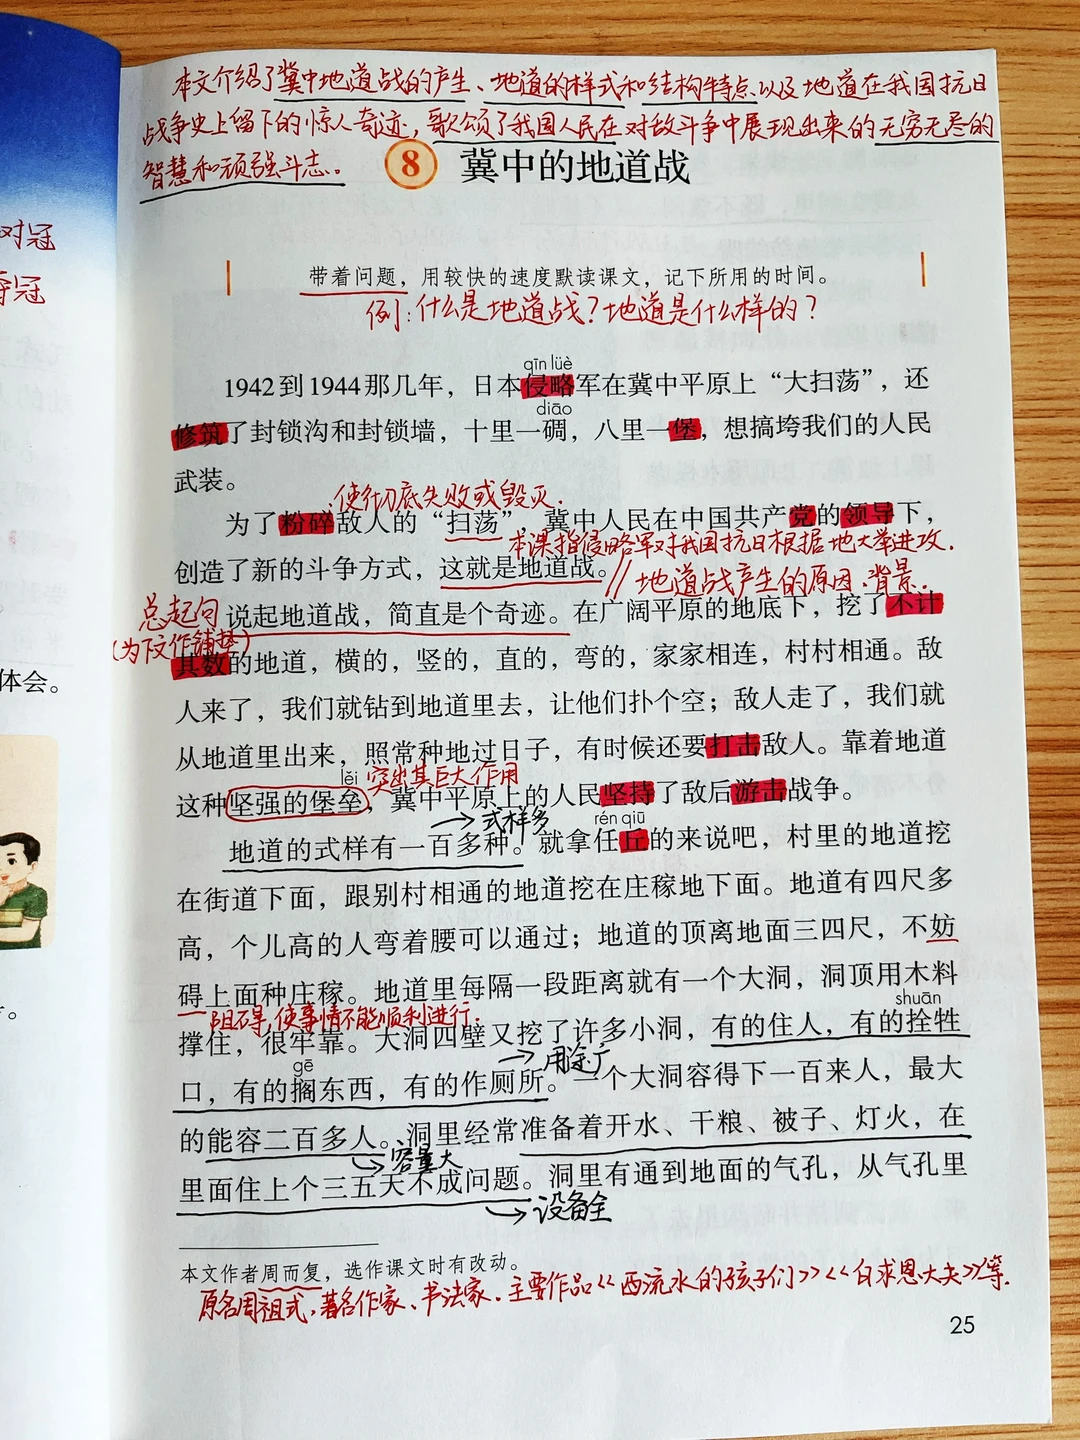 本文介绍了冀中地道战的产生、地道的样式和结构特点以及地道在我国抗日
战争史上留下的惊人奇迹，歌颂了我国人民在对敌斗争中展现出来的无穷无尽的
智慧和顽强斗志。
8 冀中的地道战
对冠
夺冠
带着问题，用较快的速度默读课文，记下所用的时间。
例：什么是地道战？地道是什么样的？
qīn lüè
1942到1944那几年，日本侵略军在冀中平原上“大扫荡”，还
diāo
修筑了封锁沟和封锁墙，十里一碉，八里一堡，想搞垮我们的人民
武装。
使彻底失败或毁灭.
为了粉碎敌人的“扫荡”，冀中人民在中国共产党的领导下，
本课指侵略军对我国抗日根据地大举进攻.
创造了新的斗争方式，这就是地道战。// 地道战产生的原因、背景.
总起句
说起地道战，简直是个奇迹。在广阔平原的地底下，挖了不计
(为下文作铺垫)
其数的地道，横的，竖的，直的，弯的，家家相连，村村相通。敌
体会。
人来了，我们就钻到地道里去，让他们扑个空；敌人走了，我们就
从地道里出来，照常种地过日子，有时候还要打击敌人。靠着地道
lěi 突出其巨大作用
这种坚强的堡垒，冀中平原上的人民坚持了敌后游击战争。
→式样多 rén qiū
地道的式样有一百多种。就拿任丘的来说吧，村里的地道挖
在街道下面，跟别村相通的地道挖在庄稼地下面。地道有四尺多
高，个儿高的人弯着腰可以通过；地道的顶离地面三四尺，不妨
碍上面种庄稼。地道里每隔一段距离就有一个大洞，洞顶用木料
阻碍，使事情不能顺利进行. shuān
撑住，很牢靠。大洞四壁又挖了许多小洞，有的住人，有的拴牲
gē →用途广
口，有的搁东西，有的作厕所。一个大洞容得下一百来人，最大
的能容二百多人。洞里经常准备着开水、干粮、被子、灯火，在
→容量大
里面住上个三五天不成问题。洞里有通到地面的气孔，从气孔里
→设备全
本文作者周而复，选作课文时有改动。
原名周祖式，著名作家、书法家. 主要作品《西流水的孩子们》《白求恩大夫》等.
25